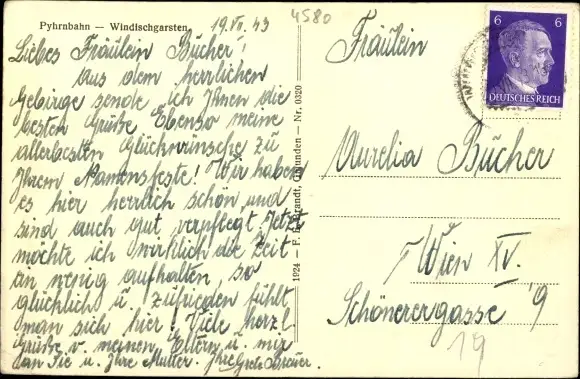 Pyhrnbahn — Windischgarsten
19. VII. 43
4580
Liebes Fräulein Bücher!
Aus dem herrlichen
Gebirge sende ich Ihnen die
besten Grüße. Ebenso meine
allerbesten Glückwünsche zu
Ihrem Namensfeste! Wir haben
es hier herrlich schön und
sind auch gut verpflegt. Jetzt
möchte ich wirklich die Zeit
ein wenig aufhalten so
glücklich u. zufrieden fühlt
man sich hier! Viele herzl.
Grüße v. meinen Eltern u. mir
an Sie u. Ihre Mutter. Ihre Grete Breuer.
1924 — F. E. Brandt, Gmunden — Nr. 0320
6 6
DEUTSCHES REICH
Fräulein
Aurelia Bücher
Wien XV.
Schönerergasse 9
19